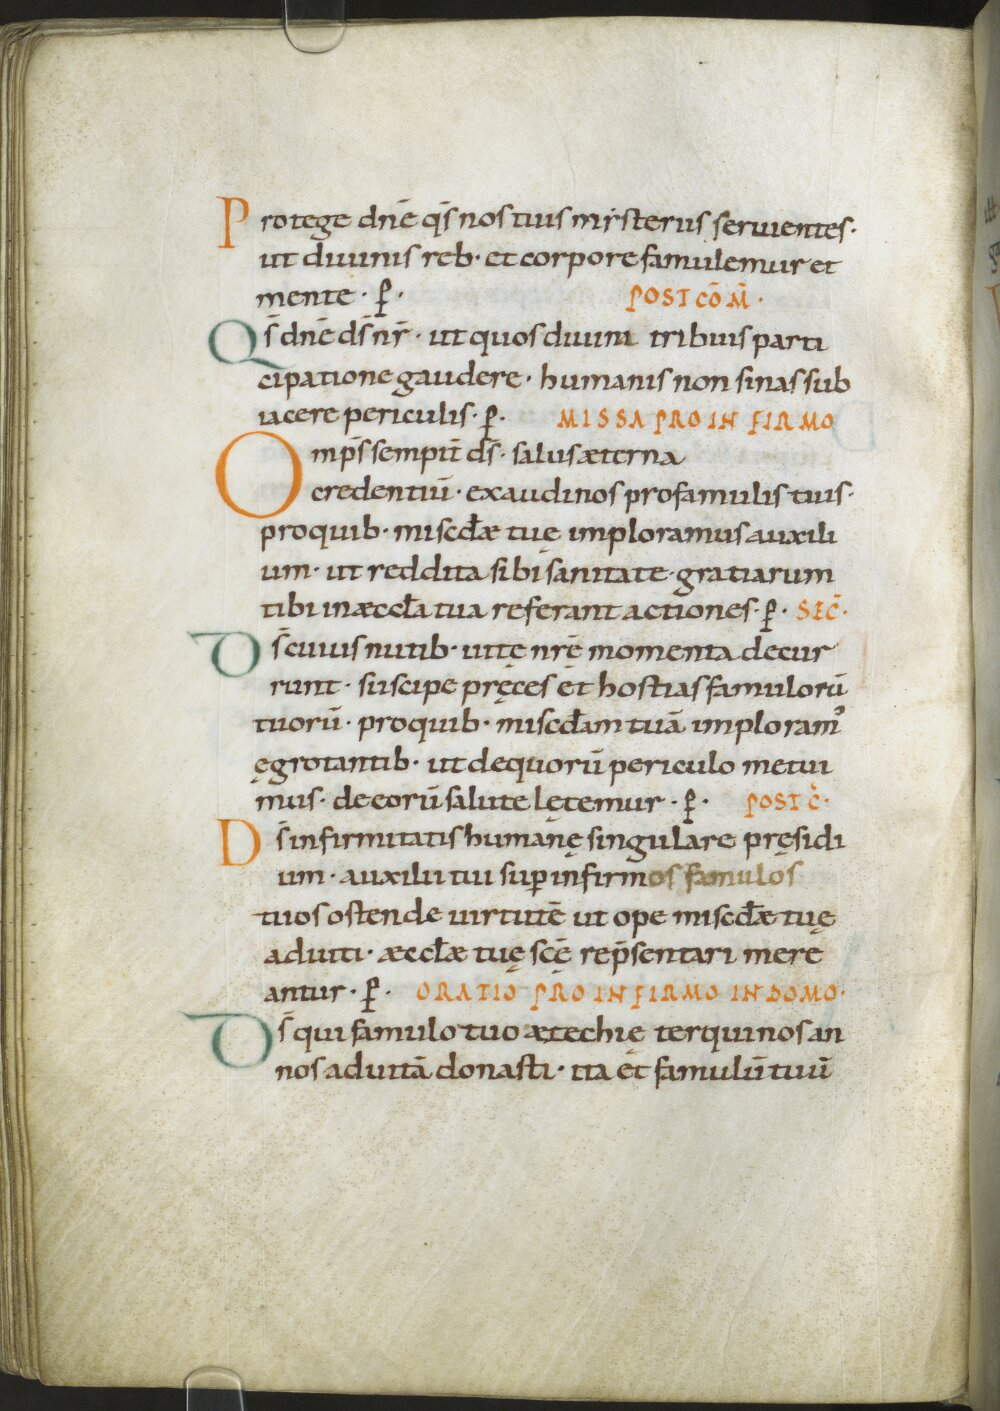 Protege dnē qs̄ nos tuis mẏsteriis seruientes·
ut diuinis reb· et corpore famulemur et
mente· p̄· POST CŌM̄·
Qs̄ dnē ds̄ nr̄· ut quos diuini tribuis parti
cipatione gaudere· humanis non sinas sub
iacere periculis· p̄· MISSA PRO INFIRMO
Omps̄ sempit̄ ds̄· salus æterna
credentiū· exaudi nos pro famulis tuis·
pro quib· miscd̄æ tuę imploramus auxili
um· ut reddita sibi sanitate· gratiarum
tibi in æccl̄a tua referant actiones· p̄· SEC̄·
Ds̄ cuius nutib· uitę nrē momenta decur
runt· suscipe pręces et hostias famulorū
tuorū· pro quib· miscd̄am tuā imploram᾽
ęgrotantib· ut de quorū periculo metui
mus· de eorū salute lętemur· p̄· POST C̄·
Ds̄ infirmitatis humanę singulare pręsidi
um· auxilii tui sup̄ infirmos famulos
tuos ostende uirtutē ut ope miscd̄æ tuę
adiuti· æccl̄æ tuę scę̄ rep̄sentari mere
antur· p̄· ORATIO PRO INFIRMO IN DOMO·
Ds̄ qui famulo tuo æzechię ter quinos an
nos ad uitā donasti· ita et famulū tuū